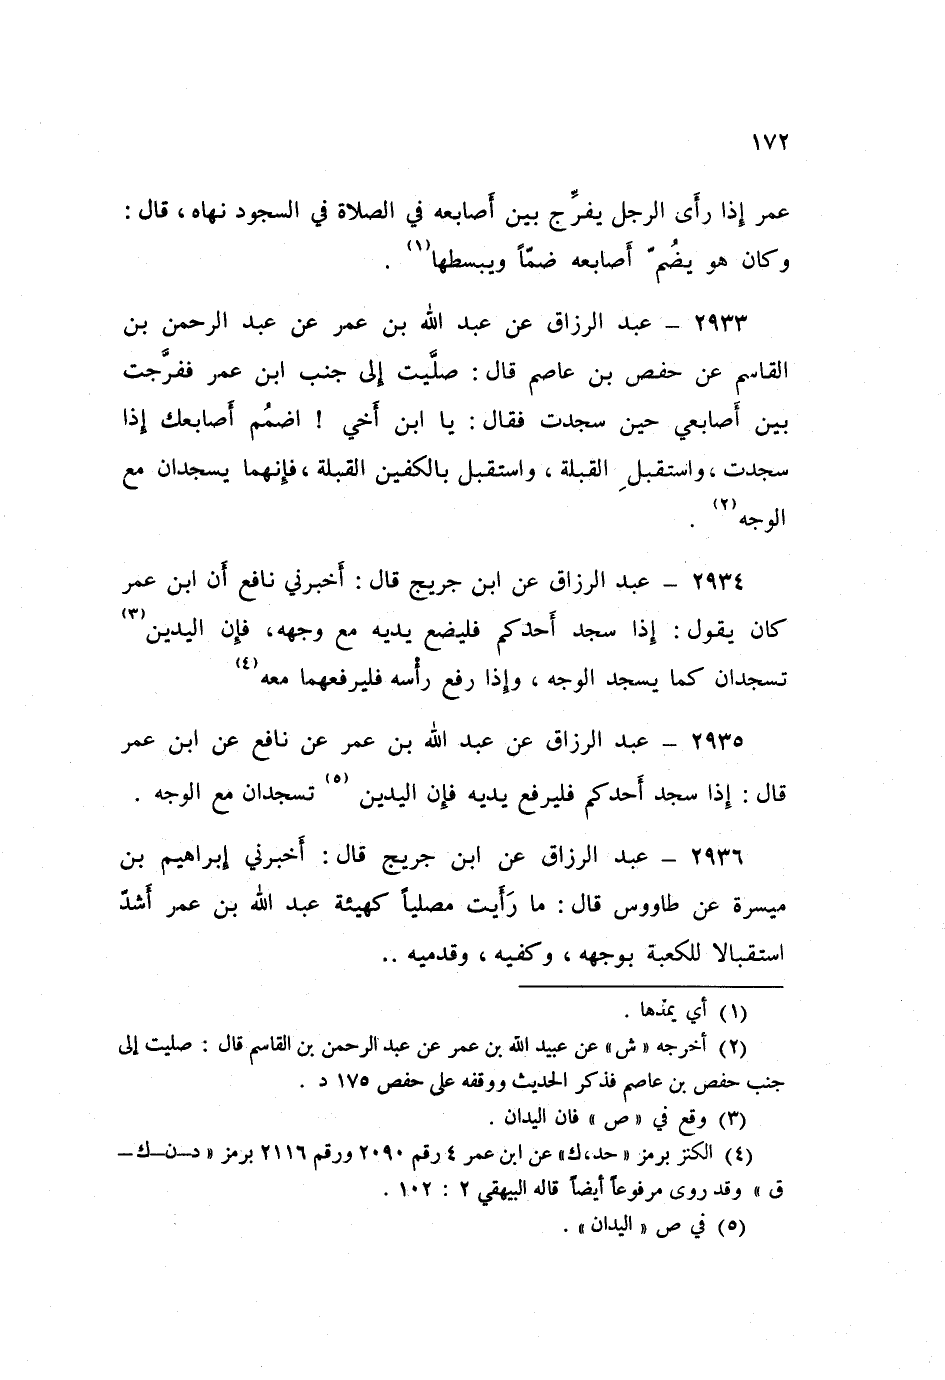 ١٧٢
عمر إذا رأَى الرجل يفرِّج بين أَصابعه في الصلاة في السجود نهاه ، قال :
وكان هو يضُمّ أَصابعه ضمّاً ويبسطها(١) .
٢٩٣٣ – عبد الرزاق عن عبد الله بن عمر عن عبد الرحمن بن
القاسم عن حفص بن عاصم قال : صلَّيت إلى جنب ابن عمر ففرَّجت
بين أَصابعي حين سجدت فقال : يا ابن أَخي ! اضمُم أَصابعك إذا
سجدت ، واستقبلِ القبلة ، واستقبل بالكفين القبلة ، فإنهما يسجدان مع
الوجه(٢) .
٢٩٣٤ – عبد الرزاق عن ابن جريج قال : أَخبرني نافع أَن ابن عمر
كان يقول : إذا سجد أَحدكم فليضع يديه مع وجهه ، فإن اليدين(٣)
تسجدان كما يسجد الوجه ، وإذا رفع رأْسه فليرفعهما معه(٤)
٢٩٣٥ – عبد الرزاق عن عبد الله بن عمر عن نافع عن ابن عمر
قال : إذا سجد أَحدكم فليرفع يديه فإن اليدين (٥) تسجدان مع الوجه .
٢٩٣٦ – عبد الرزاق عن ابن جريج قال : أَخبرني إبراهيم بن
ميسرة عن طاووس قال : ما رَأَيت مصلياً كهيئة عبد الله بن عمر أَشدّ
استقبالا للكعبة بوجهه ، وكفيه ، وقدميه ..
(١) أي يمدّها .
(٢) أخرجه « ش » عن عبيد الله بن عمر عن عبد الرحمن بن القاسم قال : صليت إلى
جنب حفص بن عاصم فذكر الحديث ووقفه على حفص ١٧٥ د .
(٣) وقع في « ص » فان اليدان .
(٤) الكنز برمز « حد، ك» عن ابن عمر ٤ رقم ٢٠٩٠ ورقم ٢١١٦ برمز « د–ن–ك–
ق » وقد روى مرفوعاً أيضاً قاله البيهقي ٢ : ١٠٢ .
(٥) في ص « اليدان » .